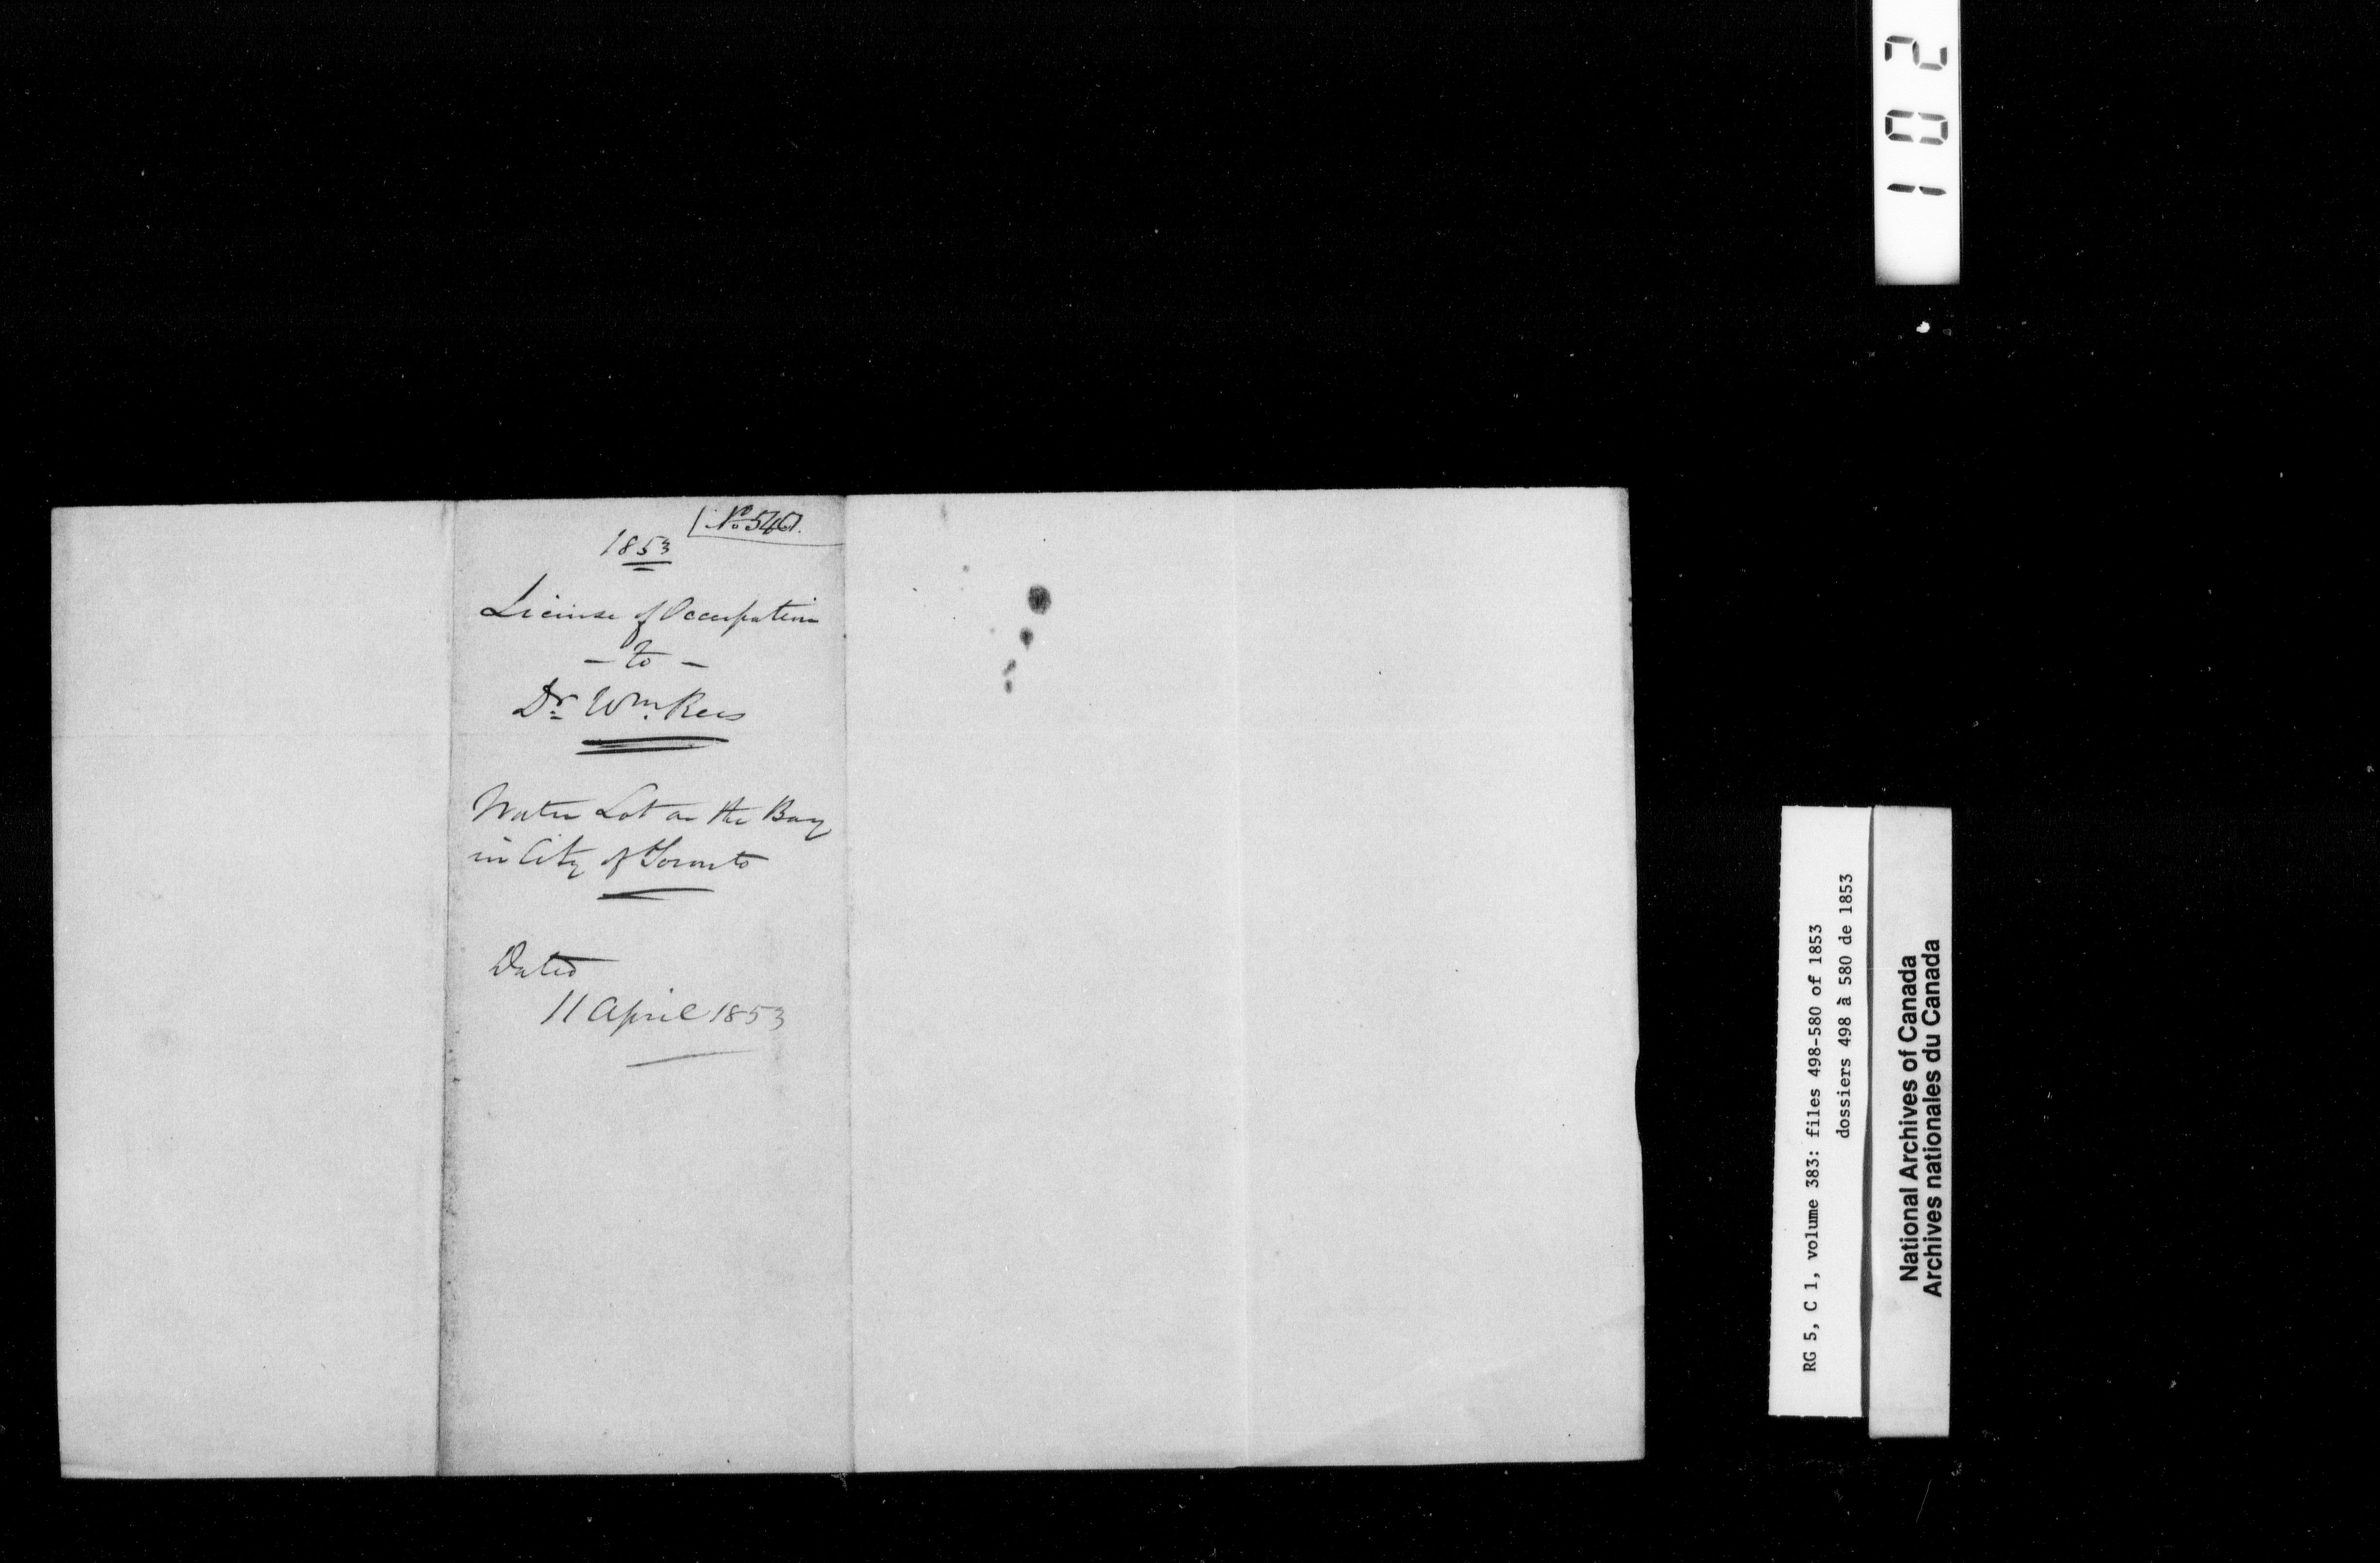 No 540.
1853
License of Occupation
- to -
Dr Wm. Rees
Water Lot on the Bay
in City of Toronto
Dated
11 April 1853
102
RG 5, C 1, volume 383: files 498-580 of 1853
dossiers 498 à 580 de 1853
National Archives of Canada
Archives nationales du Canada